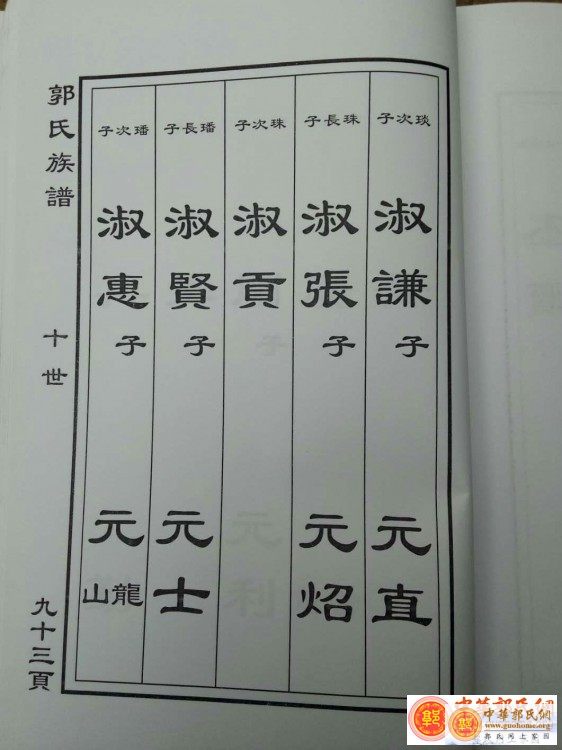 郭氏族譜
十世
九十三頁
琰次子
淑謙子
元直
珠長子
淑張子
元炤
珠次子
淑貢
璠長子
淑賢子
元士
璠次子
淑惠子
元龍山
中華郭氏網
www.guohome.org
郭氏网上家园